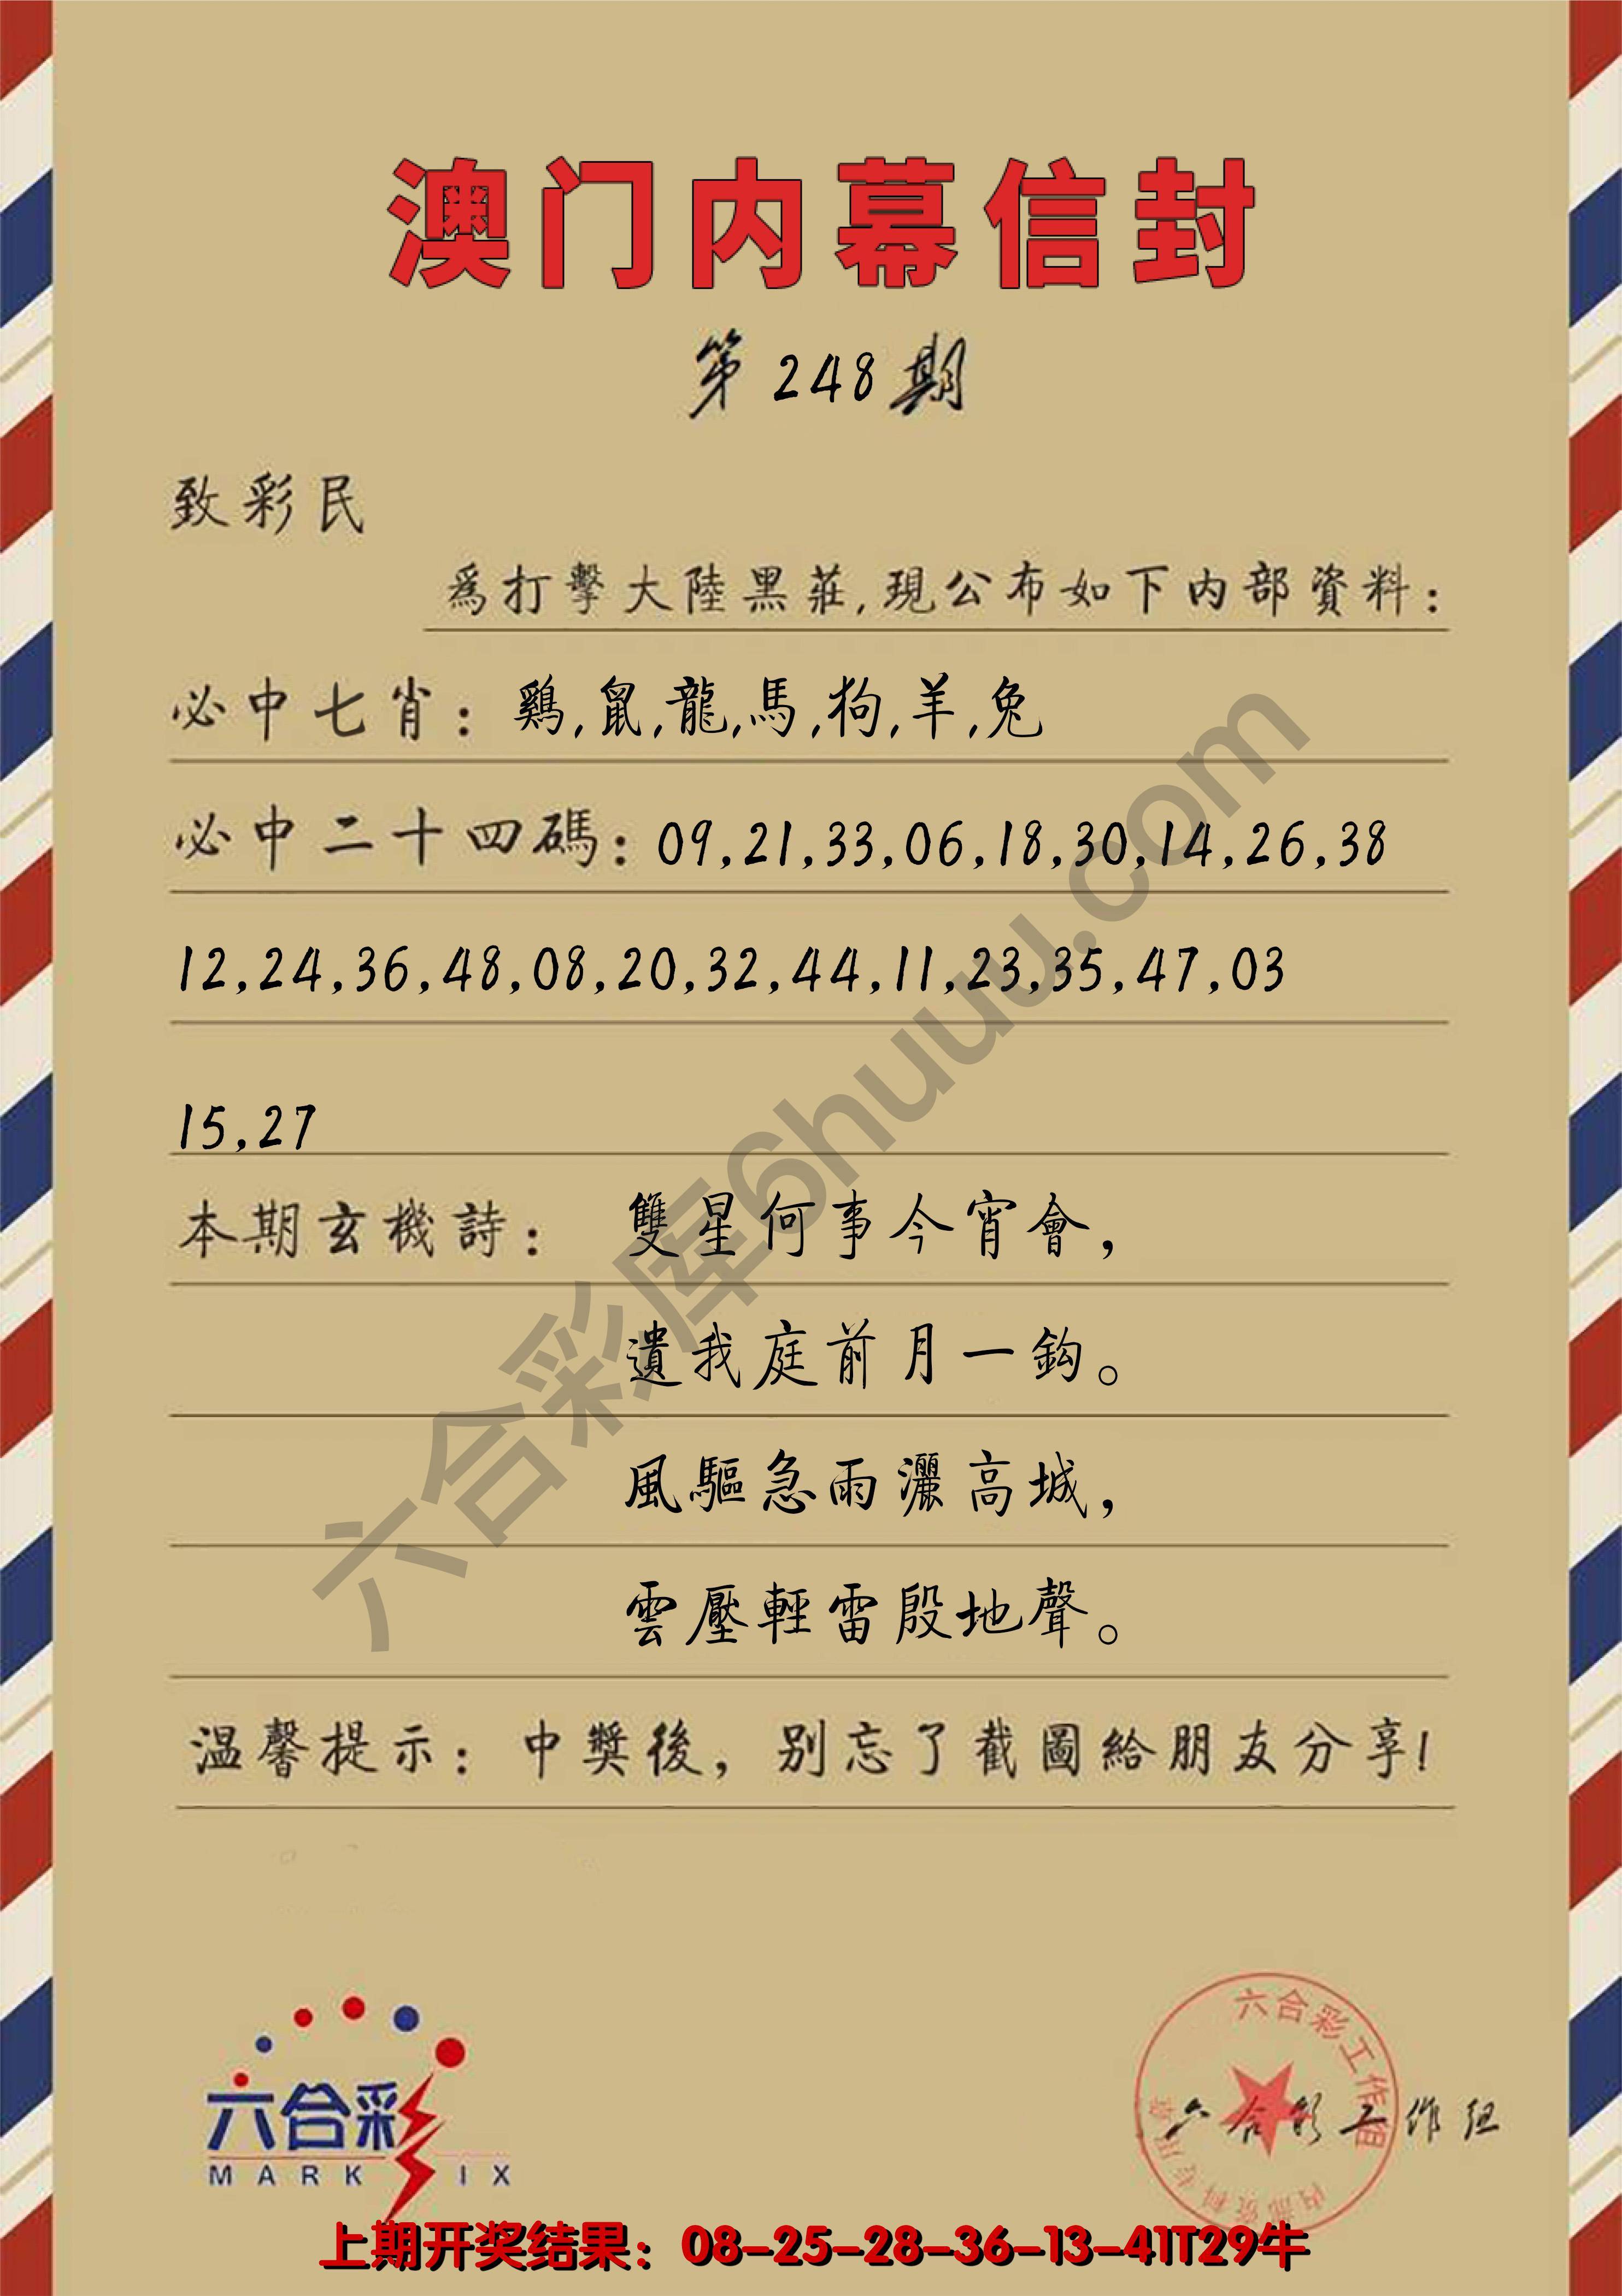 澳门内幕信封
第248期
致彩民
爲打擊大陸黑莊,現公布如下内部資料:
必中七肖: 鷄,鼠,龍,馬,狗,羊,兔
必中二十四碼: 09,21,33,06,18,30,14,26,38
12,24,36,48,08,20,32,44,11,23,35,47,03
15,27
本期玄機詩: 雙星何事今宵會,
遺我庭前月一鈎。
風驅急雨灑高城,
雲壓輕雷殷地聲。
温馨提示: 中獎後, 别忘了截圖給朋友分享!
六合彩库6huuu.com
六合彩
MARK IX
六合彩工作组
内部资料专用章
六合彩工作组
上期开奖结果: 08-25-28-36-13-41T29牛